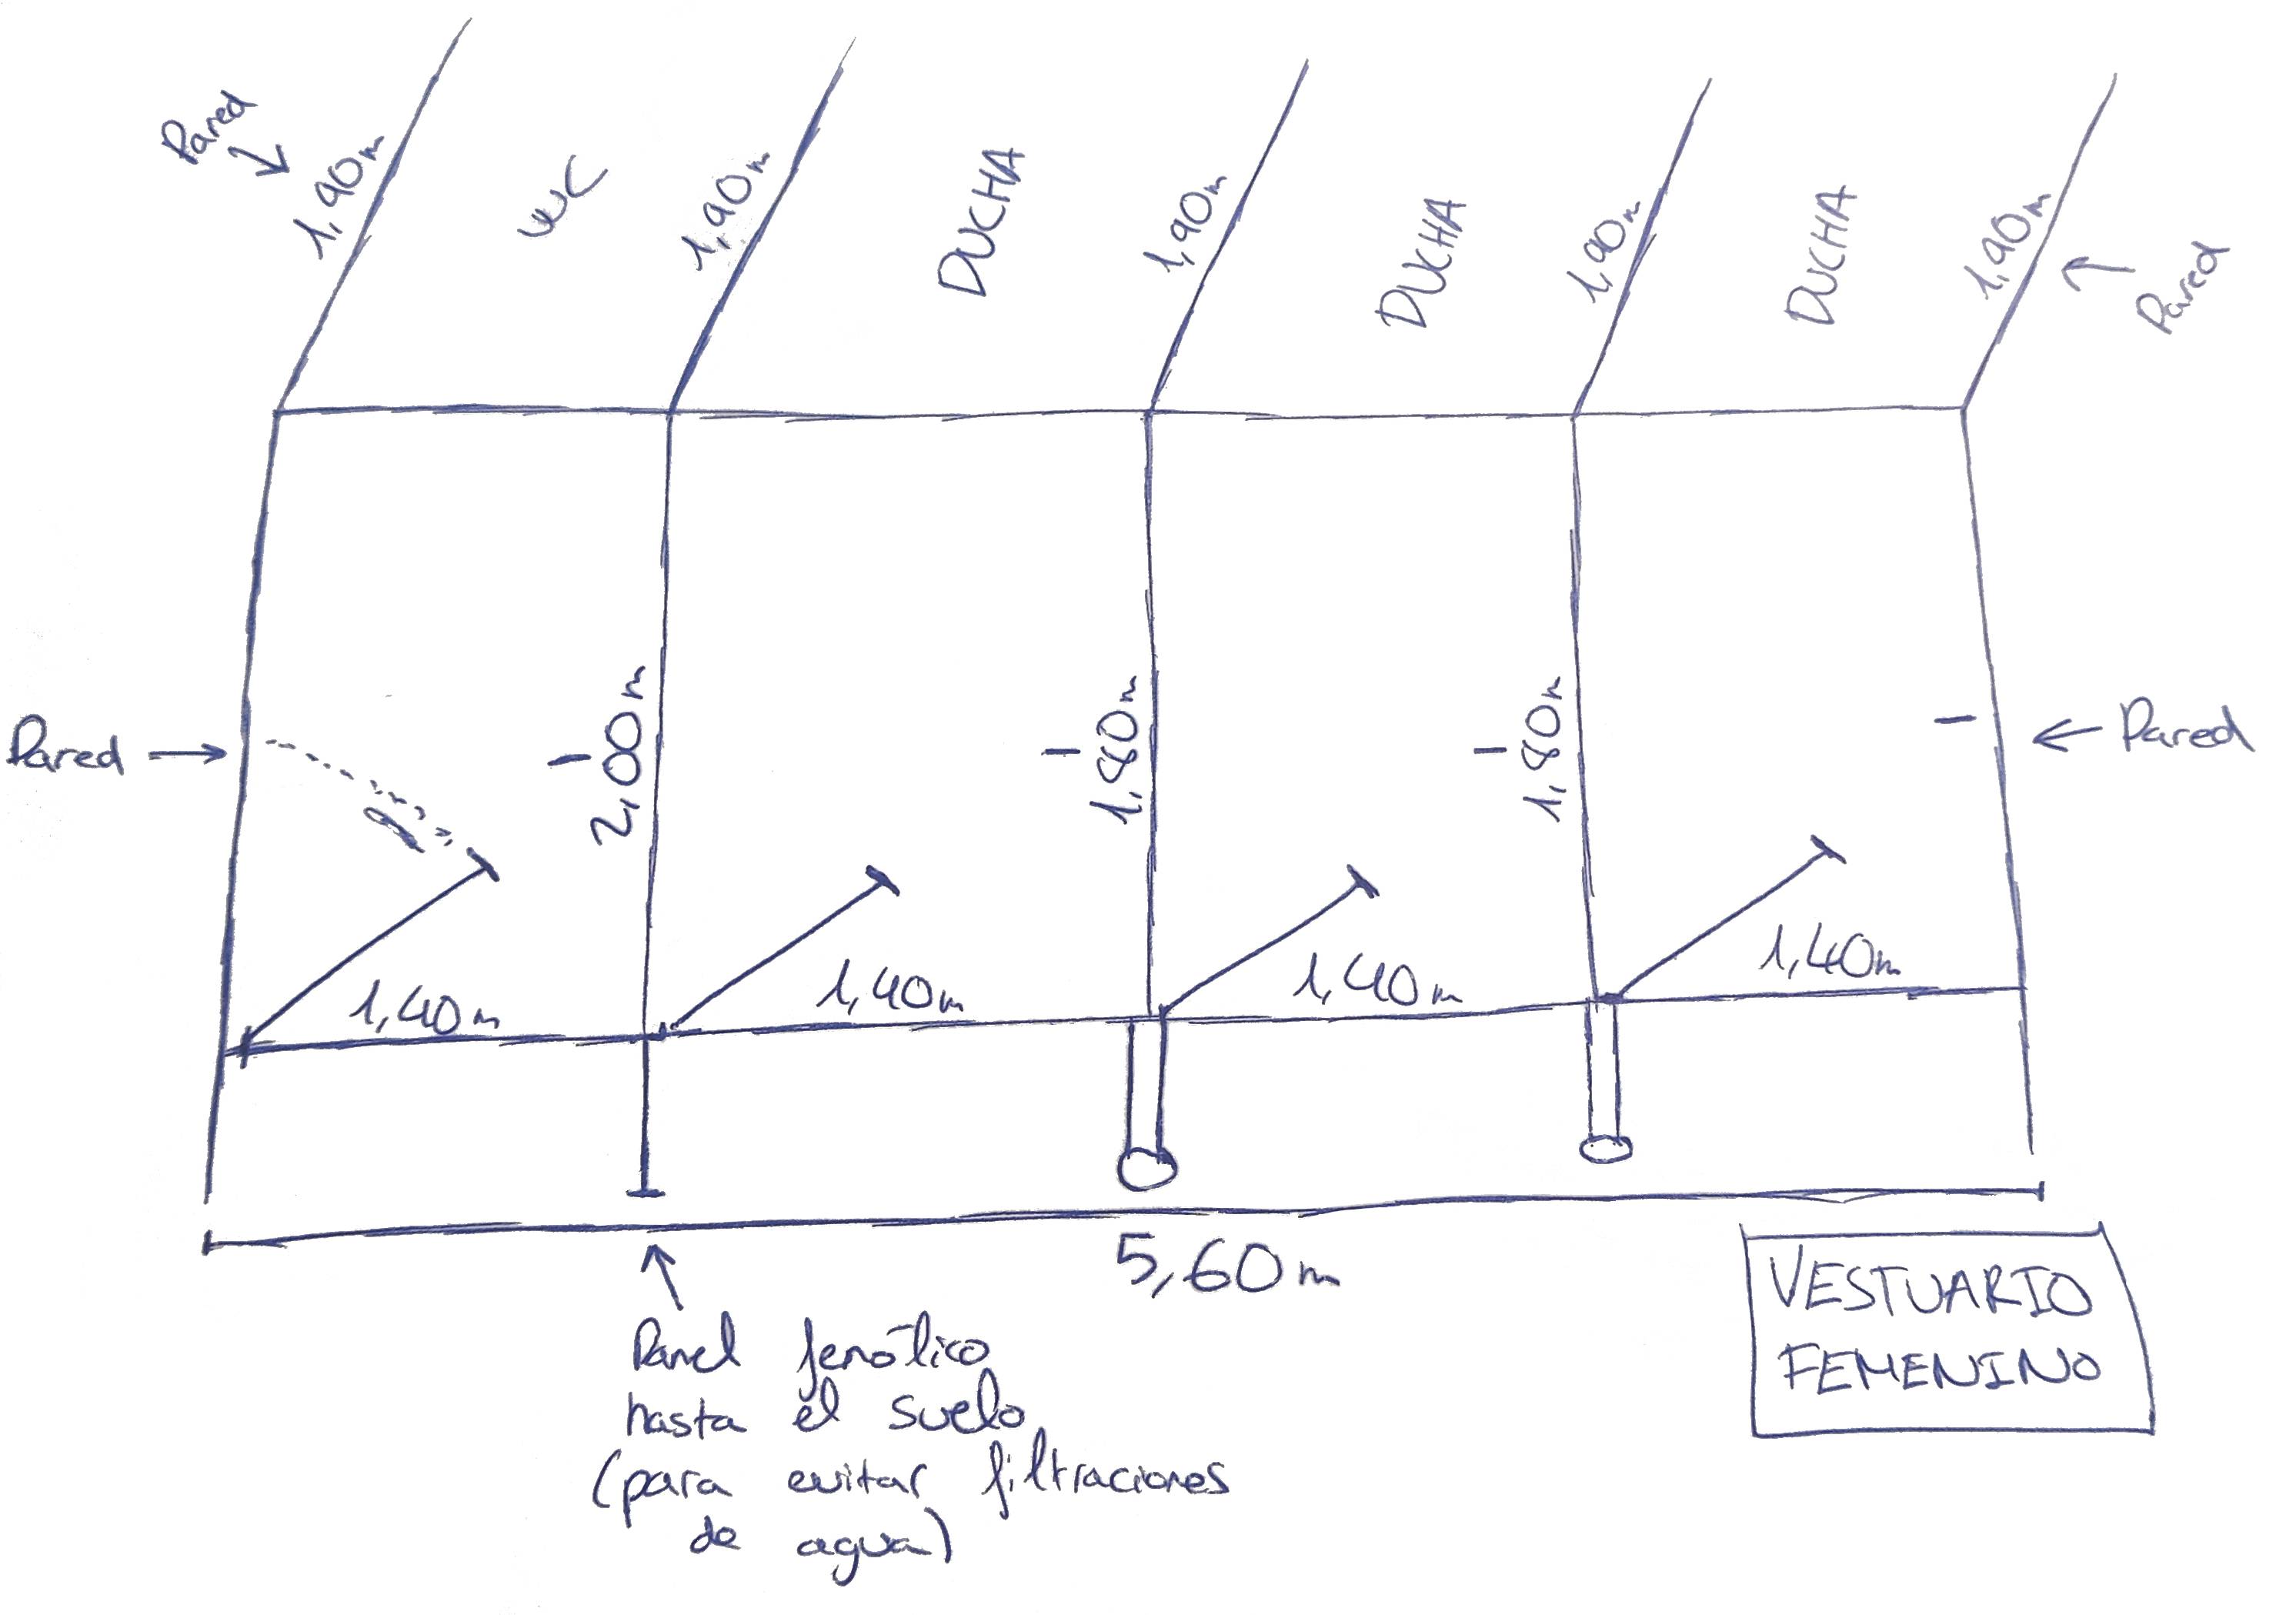 Pared
1,90m
WC
1,90m
DUCHA
1,90m
DUCHA
1,90m
DUCHA
1,90m
Pared
Pared
2,00m
1,80m
1,80m
Pared
1,40m
1,40m
1,40m
1,40m
5,60m
Panel fenólico
hasta el suelo
(para evitar filtraciones
de agua)
VESTUARIO
FEMENINO